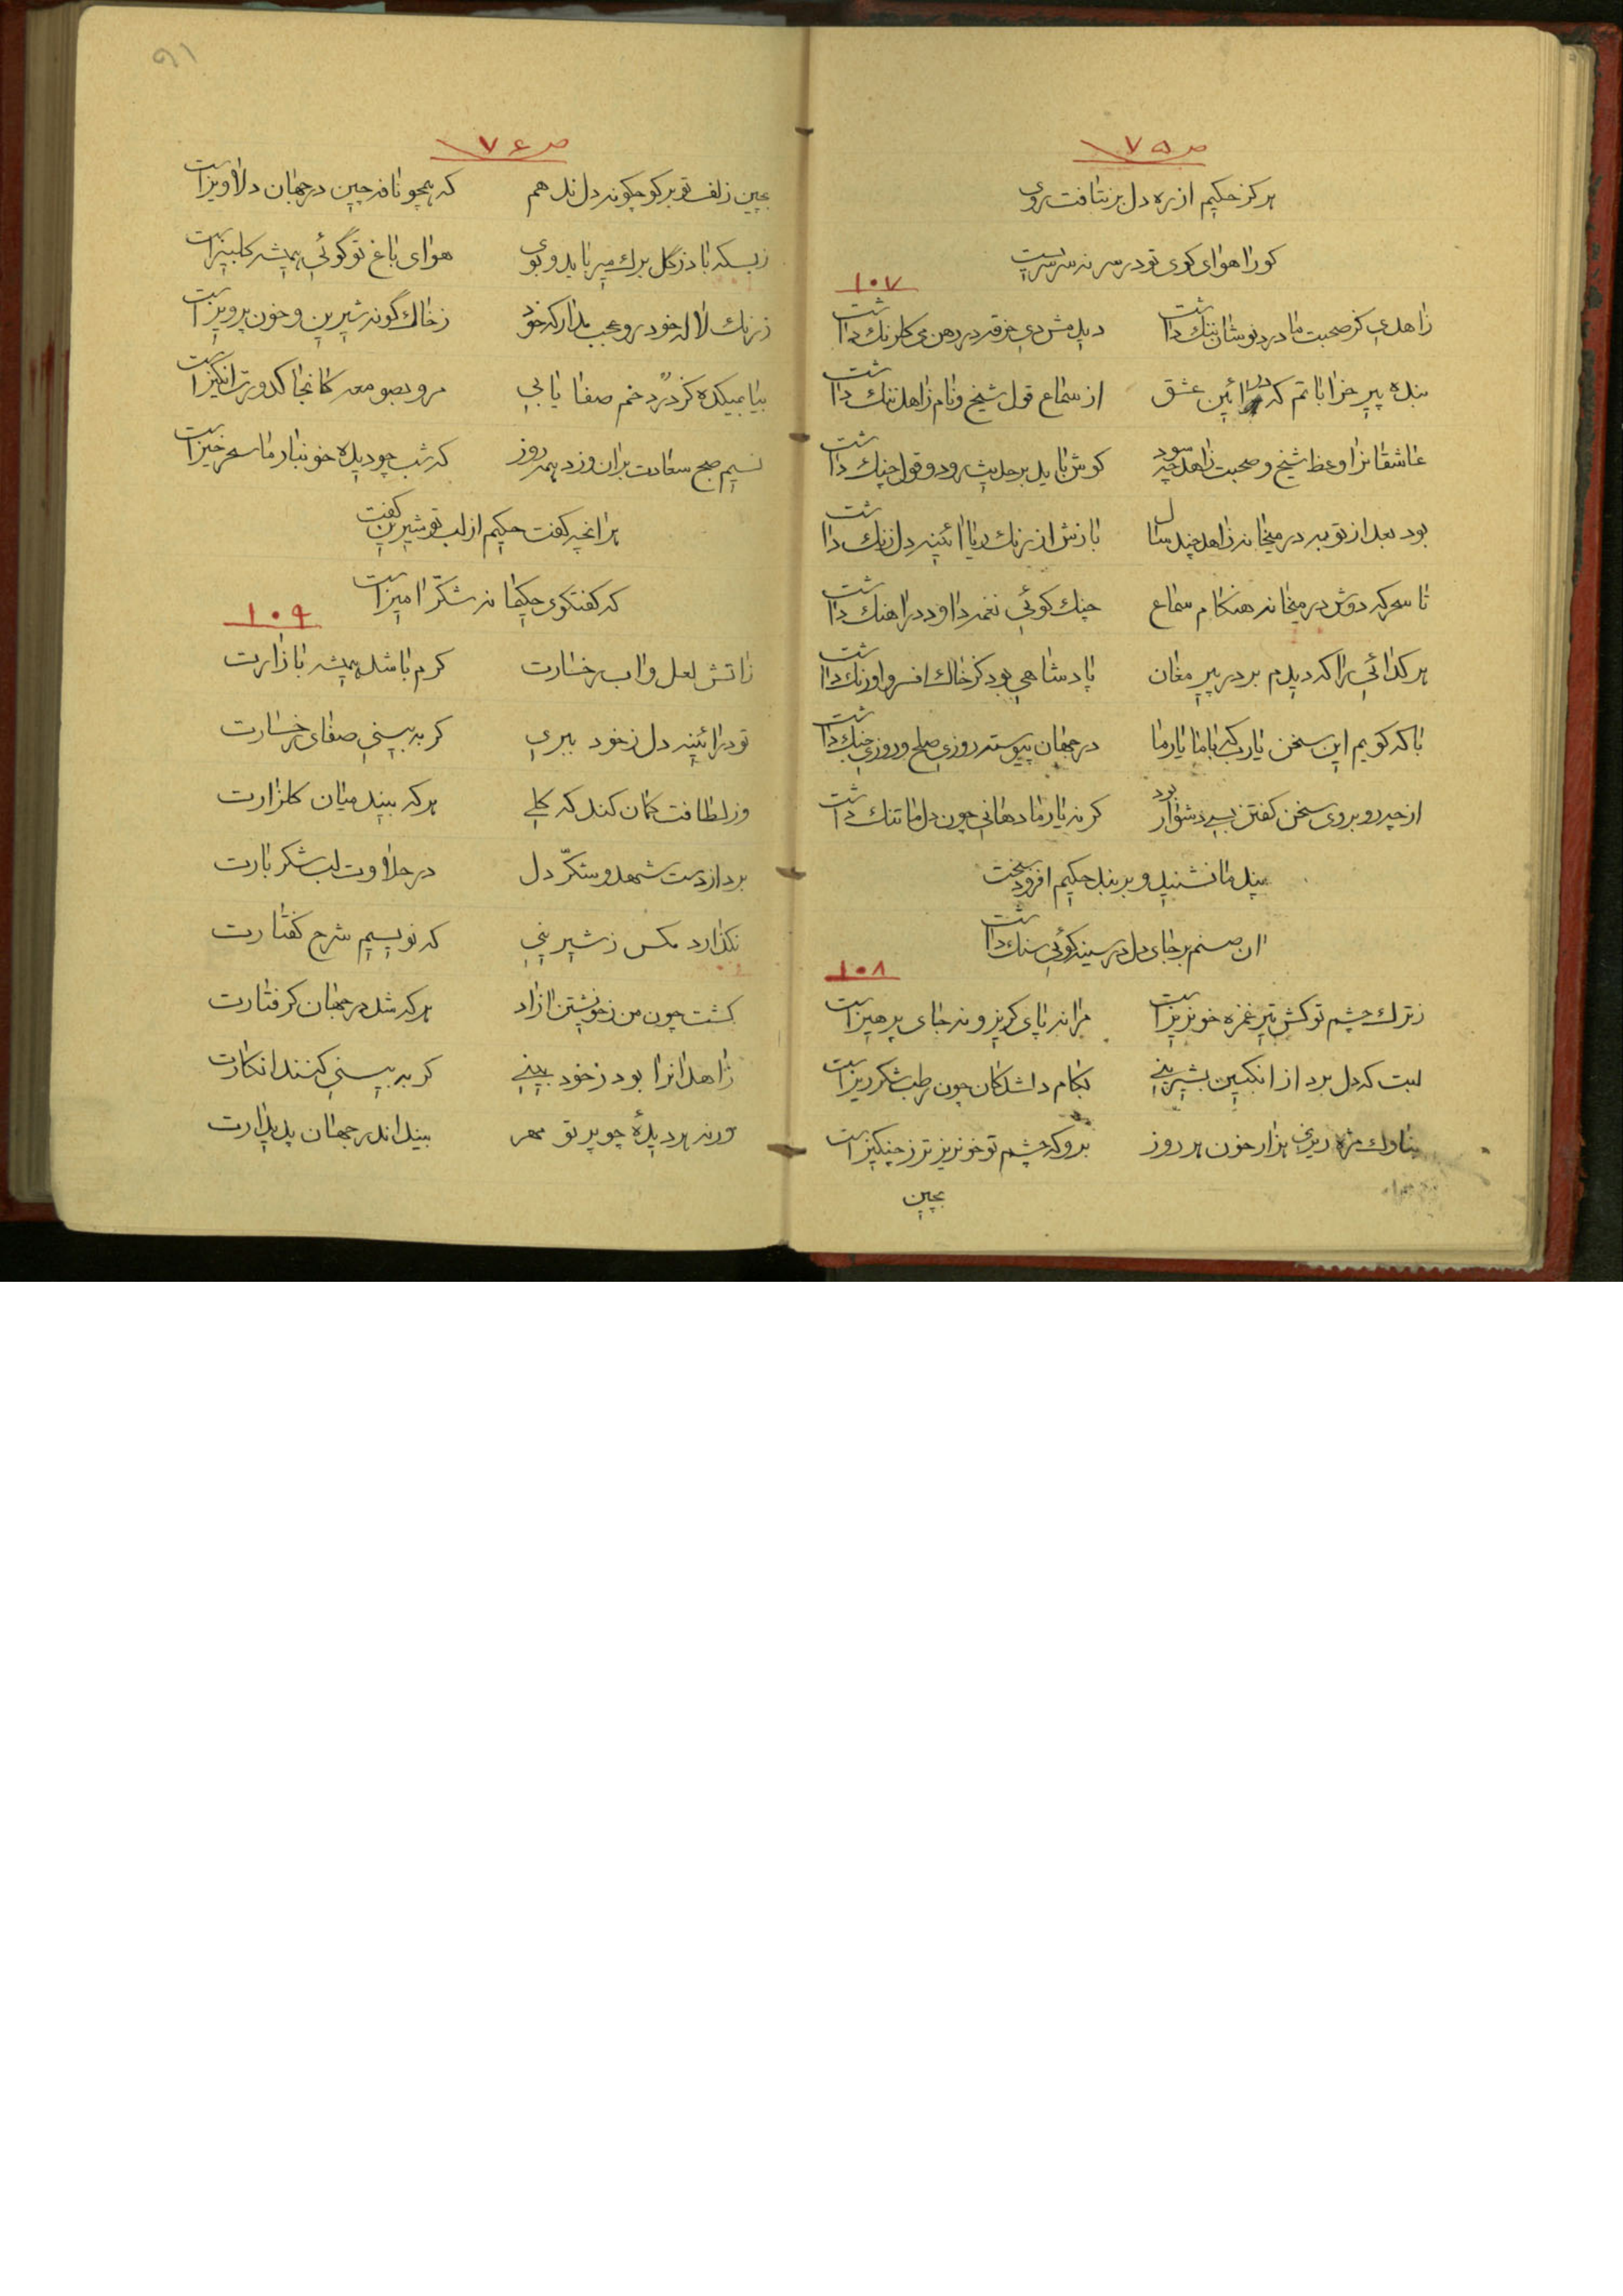 ص ۷۵
هرکز حکیم از ره دل برنتافت روی
کو را هوای کوی تو در سر نه سرسریست
۱۰۷
زاهدی کز صحبت ما درد نوشان ننک داشت دیدمش دی خرقه در رهن می کلرنک داشت
بنده پیر خراباتم که در ائین عشق از سماع قول شیخ و نام زاهد ننک داشت
عاشقانرا وعظ شیخ و صحبت زاهد چه سود کوش باید بر حدیث رود و قول چنک داشت
بود بعد از توبه در میخانه زاهد چند سال بازش از زنک ریا ائینه دل زنک داشت
تا سحر که دوش در میخانه هنکام سماع چنک کوئی نغمه داود در اهنک داشت
هر کدائی را که دیدم بر در پیر مغان پادشاهی بود کز خاک افسر و اورنک داشت
با که کویم این سخن یارب که با ما یار ما در جهان پیوسته روزی صلح و روزی جنک داشت
از چه رو بر وی سخن کفتن بسی دشوار بود کر نه یار ما دهانی چون دل ما تنک داشت
پند ما نشنید و بر بند حکیم افزود سخت
ان صنم بر جای دل در سینه کوئی سنک داشت
۱۰۸
ز ترک چشم تو کش تیر غمزه خونریز است مرا نه پای کریز و نه جای پرهیز است
لبت که دل برد از انکبین بشیرینی بکام دلشدکان چون رطب شکرریز است
بناوک مژه ریزی هزار خون هر روز برو که چشم تو خونریزتر ز چنکیز است
بچین
۹۱
ص ۷۶
بچین زلف تو بر کو چکونه دل ندهم که همچو نافه چین در جهان دلاویز است
زبسکه باد ز گل برک میرباید و بوی هوای باغ تو گوئی همیشه کلبیز است
ز رنک لاله خود رو عجب مدار که خود ز خاک گونه شیرین و خون پرویز است
بیا بمیکده کز درد خم صفا یابی مرو بصومعه کانجا کدورت انگیز است
نسیم صبح سعادت بران وزد همه روز که شب چو دیده خونبار ما سحرخیز است
هرانچه کفت حکیم از لب تو شیرین کفت
که کفتکوی حکیمانه شکّر امیز است
۱۰۹
زاتش لعل و اب رخسارت کرم باشد همیشه بازارت
تو در ائینه دل ز خود ببری کر به بینی صفای رخسارت
وز لطافت کمان کند که کلی هر که بیند میان کلزارت
برد از دست شهد و شکّر دل در حلاوت لب شکر بارت
نکذارد مکس ز شیرینی که نویسیم شرح کفتارت
کشت چون من ز خویشتن ازاد هر که شد در جهان کرفتارت
زاهدانرا بود ز خود بینی کر به بینی کنند انکارت
ورنه هر دیدهٔ چو پرتو مهر بیند اندر جهان پدیدارت